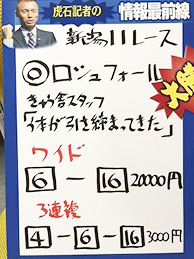 虎石記者の
情報最前線
新潟11レース
◎ロシュフォール
大勝
きゅう舎スタッフ
「体が引き締まってきた」
ワイド
6-16 20000円
3連複
4-6-16 3000円